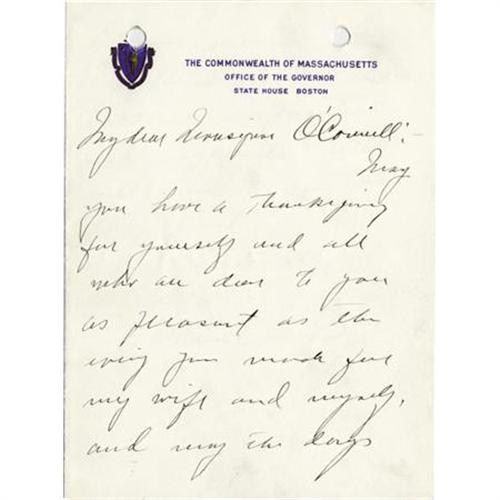 THE COMMONWEALTH OF MASSACHUSETTS
OFFICE OF THE GOVERNOR
STATE HOUSE BOSTON
My dear O'Connell:
May
you have a Thanksgiving
for yourself and all
who are dear to you
as pleasant as the
you made for
my wife and myself,
and may the days